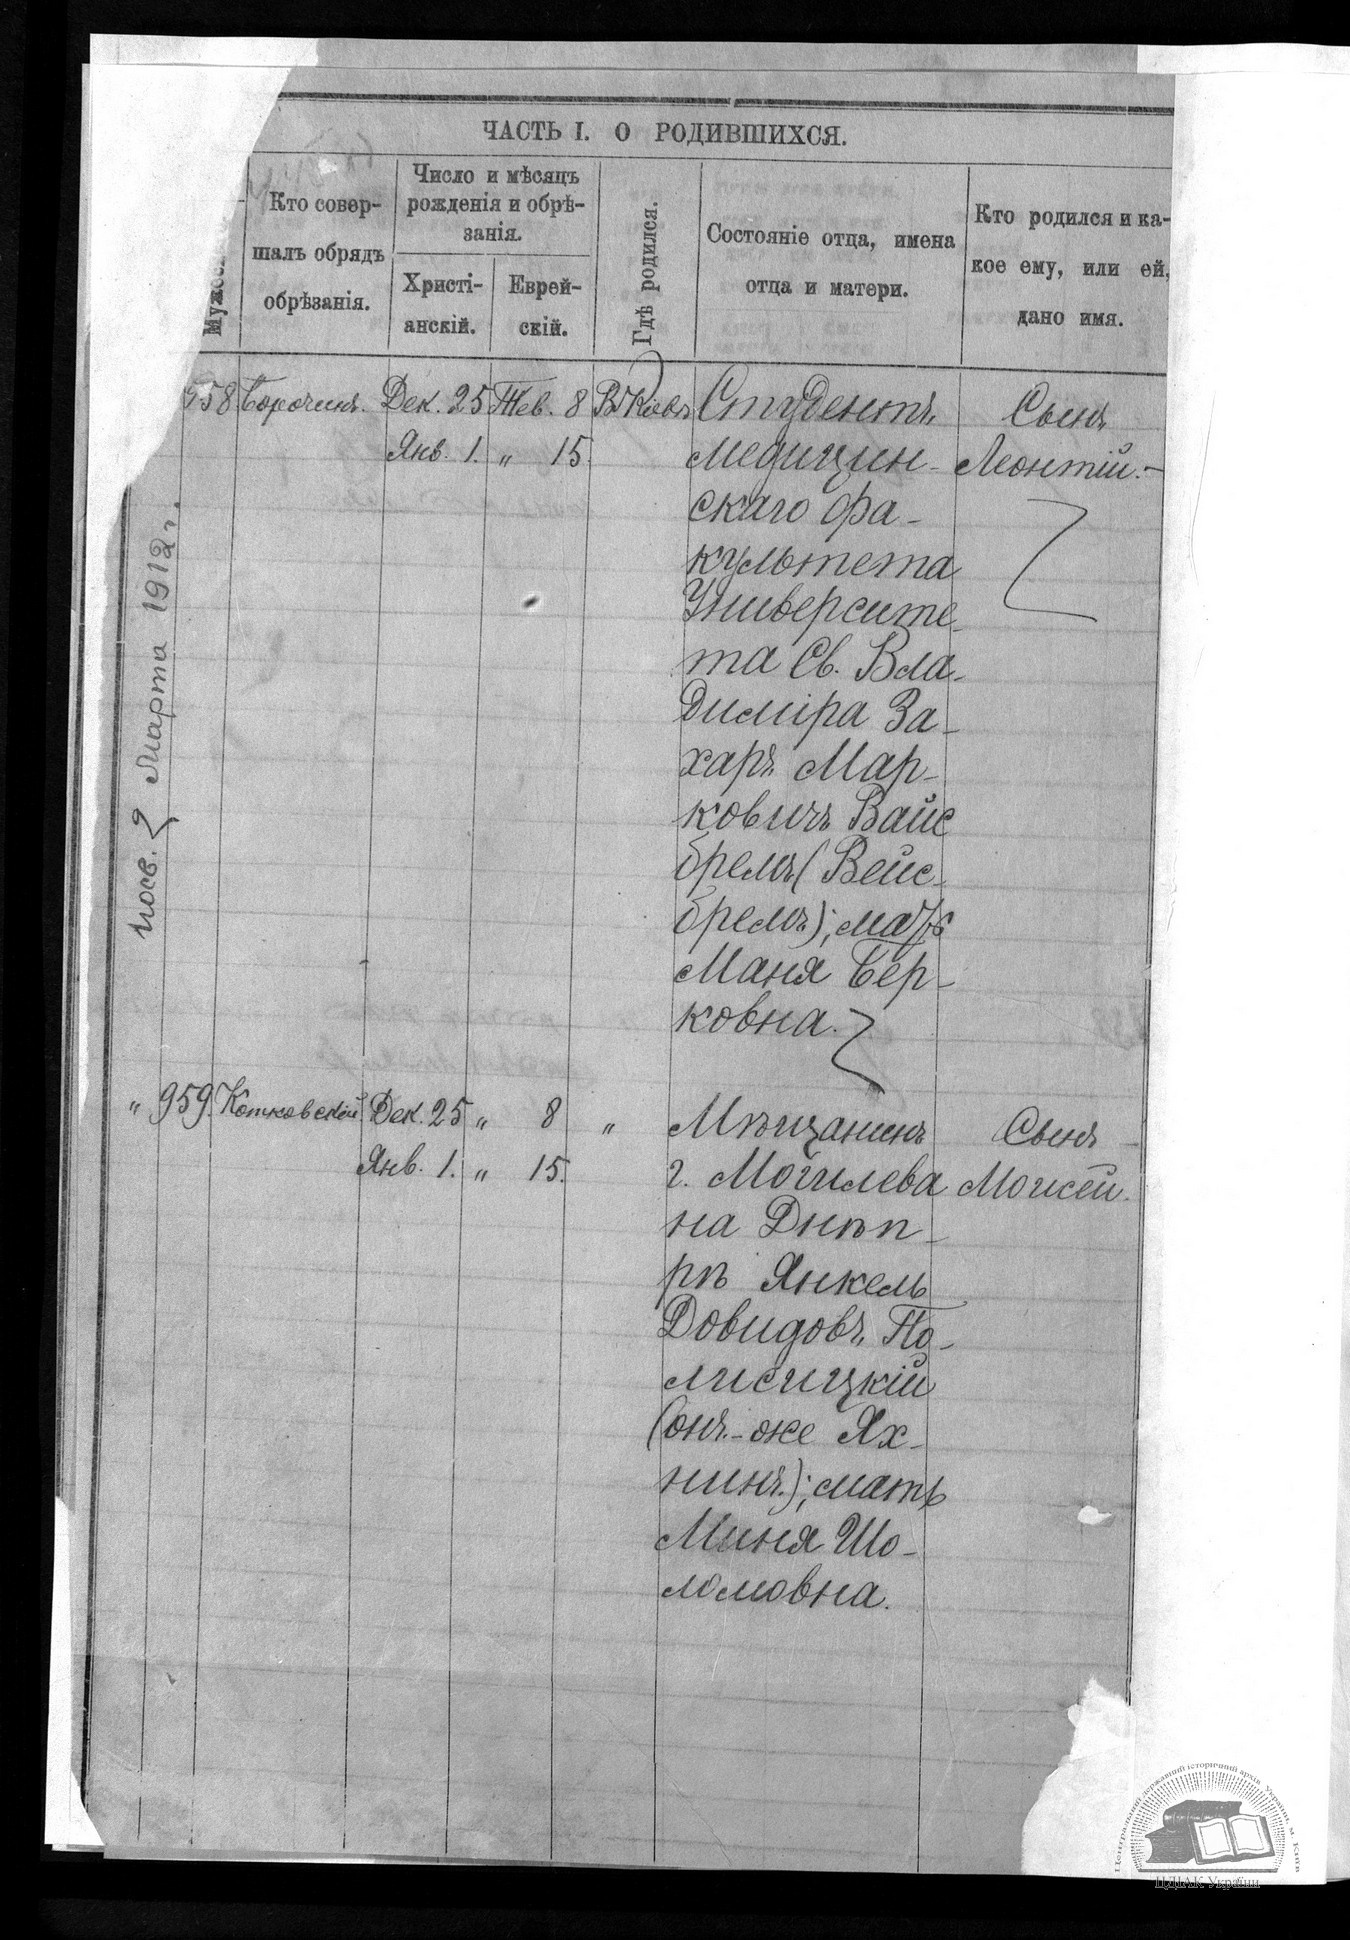 ЧАСТЬ I. О РОДИВШИХСЯ.
Кто совер-
шалъ обрядъ
обрѣзанія.
Число и мѣсяцъ
рожденія и обрѣ-
занія.
Христі-
анскій.
Еврей-
скій.
Гдѣ родился.
Состояніе отца, имена
отца и матери.
Кто родился и ка-
кое ему, или ей,
дано имя.
958. Сорочинъ. Дек. 25 Тев. 8 Студентъ Сынъ
Янв. 1. „ 15. медицин- Леонтій.-
скаго фа-
культета
Университе-
та Св. Вла-
диміра За-
харъ Мар-
ковичъ Вайс
бремъ (Вейс-
бремъ); мать
Маня Бер-
ковна.
Марта 1912 г.
„ 959. Котковскій. Дек. 25 „ 8 „ Мѣщанинъ Сынъ
Янв. 1. „ 15. г. Могилева Моисей.
на Днѣп-
рѣ Янкель
Довидовъ По-
лисицкій
(онъ-же Ях-
нинъ); мать
Миня Шо-
ломовна.
Центральний державний історичний архів України, м. Київ
ЦДІАК України